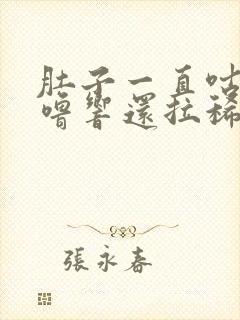 肚子一直咕
嚕響還拉稀
張永春